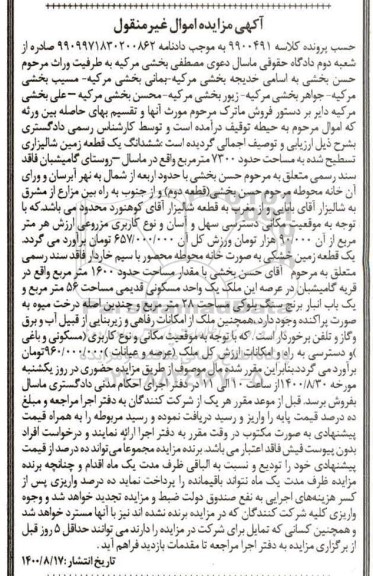 آگهی مزایده اموال غیرمنقول
حسب پرونده کلاسه ۹۹۰۰۴۹۱ به موجب دادنامه ۹۹۰۹۹۷۱۸۳۰۲۰۰۸۶۲ صادره از
شعبه دوم دادگاه حقوقی ماسال دعوی مصطفی بخشی مرکیه به طرفیت وراث مرحوم
حسن بخشی به اسامی خدیجه بخشی مرکیه-یمانی بخشی مرکیه- مسیب بخشی
مرکیه- جواهر بخشی مرکیه- زیور بخشی مرکیه- محسن بخشی مرکیه – علی بخشی
مرکیه دایر بر دستور فروش ماترک مرحوم مورث آنها و تقسیم بهای حاصله بین ورثه
که اموال مرحوم به حیطه توقیف درآمده است و توسط کارشناس رسمی دادگستری
بشرح ذیل ارزیابی و توصیف اجمالی گردیده است: ششدانگ یک قطعه زمین شالیزاری
تسطیح شده به مساحت حدود ۷۳۰۰ مترمربع واقع در ماسال –روستای گامیشبان فاقد
سند رسمی متعلق به مرحوم حسن بخشی با حدود اربعه از شمال به نهر آبرسان و ورای
آن خانه محوطه مرحوم حسن بخشی(قطعه دوم) و از جنوب به راه بین مزارع از مشرق
به شالیزار آقای بابایی از مغرب به قطعه شالیزار آقای کوهنورد محدود می باشد.که با
توجه به موقعیت مکانی دسترسی سهل و آسان و نوع کاربری مزروعی ارزش هر متر
مربع از آن ۹۰ هزار تومان وارزش کل آن ۶۵۷/۰۰۰/۰۰۰ تومان برآورد می گردد.
یک قطعه زمین خشکی به صورت خانه محوطه محصور با سیم خاردار فاقد سند رسمی
متعلق به مرحوم آقای حسن بخشی با مقدار مساحت حدود ۱۶۰۰ متر مربع واقع در
قریه گامیشبان در عرصه این ملک یک واحد مسکونی قدیمی مساحت ۵۶ متر مربع و
یک باب انبار برنج سنگ بلوکی مساحت ۲۸ متر مربع و چندین اصله درخت میوه به
صورت پراکنده وجود دارد.همچنین ملک از امکانات رفاهی و زیربنایی از قبیل آب و برق
وگاز و تلفن برخوردار است . که با توجه به موقعیت مکانی و نوع کاربری (مسکونی و باغی
)و دسترسی به راه و امکانات ارزش کل ملک (عرصه و عیانات )۹۶۰/۰۰۰/۰۰۰تومان
برآورد می گردد.بنابراین مقرر شده مال موصوف از طریق مزایده حضوری در روز یکشنبه
مورخه ۱۴۰۰/۸/۳۰ از ساعت ۱۰ الی ۱۱ در دفتر اجرای احکام مدنی دادگستری ماسال
بفروش برسد. قبل از موعد مقرر هر یک از شرکت کنندگان به دفتر اجرا مراجعه و مبلغ
ده درصد قیمت پایه را واریز و رسید دریافت نموده و رسید مربوطه را به همراه قیمت
پیشنهادی به صورت مکتوب در وقت مقرر به دفتر اجرا ارائه نمایند و درخواست افراد
بدون پیوست فیش فاقد اعتبار می باشد. برنده مزایده مجموعا می تواند ده درصد از قیمت
پیشنهادی خود را تودیع و نسبت به الباقی ظرف مدت یک ماه اقدام و چنانچه برنده
مزایده ظرف مدت یک ماه نتواند باقیمانده را پرداخت نماید ده درصد واریزی پس از
کسر هزینه‌های اجرایی به نفع صندوق دولت ضبط و مزایده تجدید خواهد شد و وجوه
واریزی کلیه شرکت کنندگان که در مزایده برنده نشده اند نیز با آنها مسترد خواهد شد
و همچنین کسانی که تمایل برای شرکت در مزایده را دارند می توانند حداقل ۵ روز قبل
از برگزاری مزایده به دفتر اجرا مراجعه تا مقدمات بازدید فراهم آید .
تاریخ انتشار :۱۴۰۰/۸/۱۷